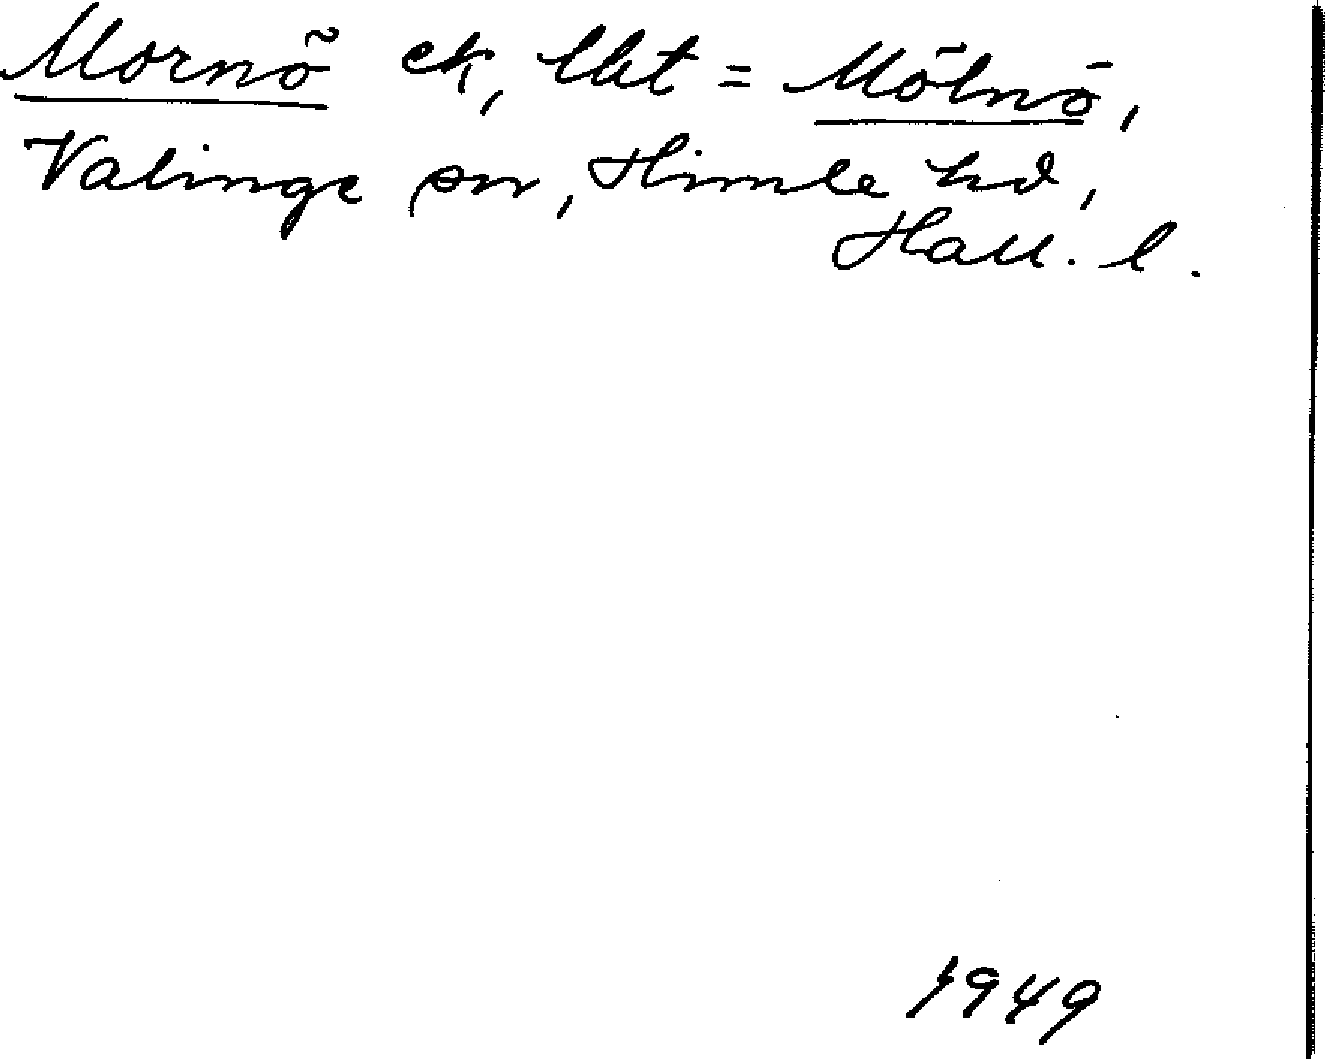 Mornö ek, lht = Mölnö,
Valinge sn, Himle hd,
Hall. l.
1949